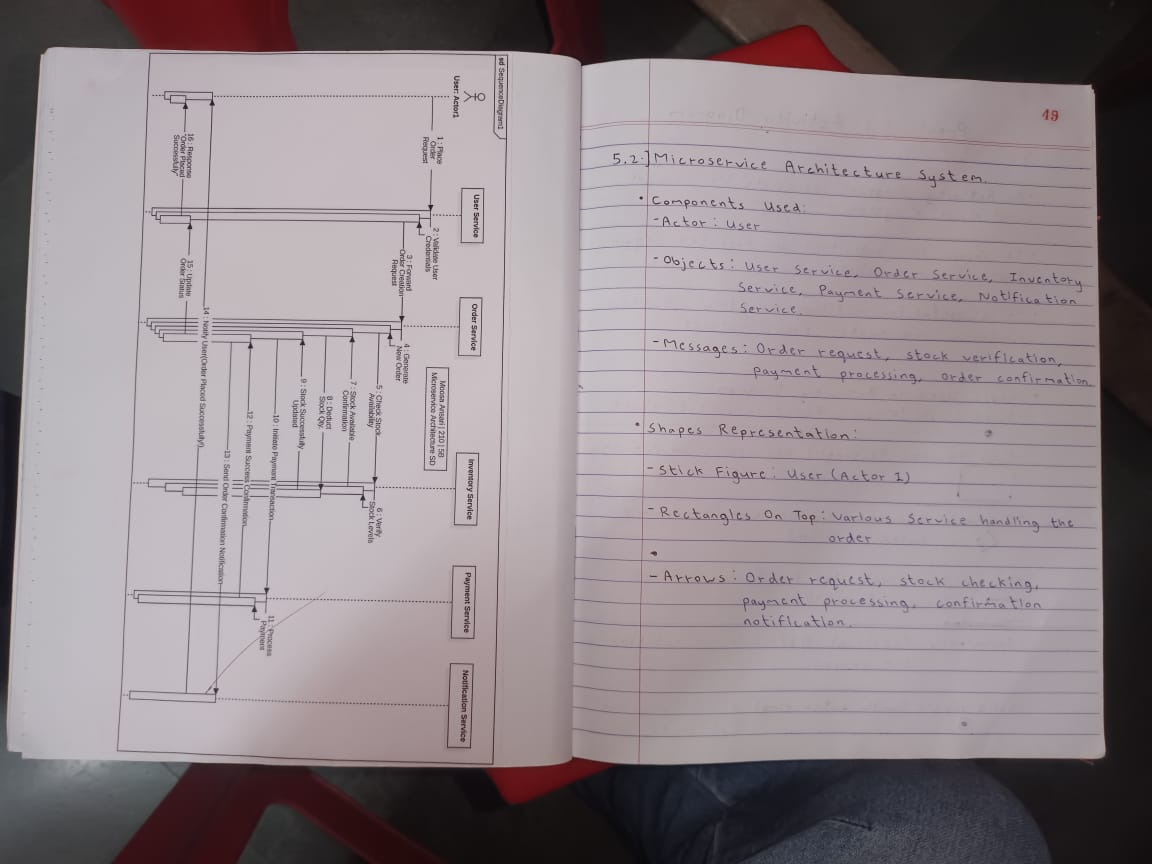 sd SequenceDiagram1
User: Actor1
User Service
Order Service
Inventory Service
Payment Service
Notification Service
Moosa Ansari | 210 | 5B
Microservice Architecture SD
1 : Place
Order
Request
2 : Validate User
Credentials
3 : Forward
Order Creation
Request
4 : Generate
New Order
5 : Check Stock
Availability
6 : Verify
Stock Levels
7 : Stock Available
Confirmation
8 : Deduct
Stock Qty.
9 : Stock Successfully
Updated
10 : Initiate Payment Transaction
11 : Process
Payment
12 : Payment Success Confirmation
13 : Send Order Confirmation Notification
14 : Notify User(Order Placed Successfully)
15 : Update
Order Status
16 : Response
"Order Placed
Successfully"
49
5.2.] Microservice Architecture System.
• Components Used:
- Actor : User
- Objects : User Service, Order Service, Inventory
Service, Payment Service, Notification
Service.
- Messages : Order request, stock verification,
payment processing, order confirmation
• Shapes Representation:
- Stick Figure : User (Actor 1)
- Rectangles On Top : Various Service handling the
order
- Arrows : Order request, stock checking,
payment processing, confirmation
notification.